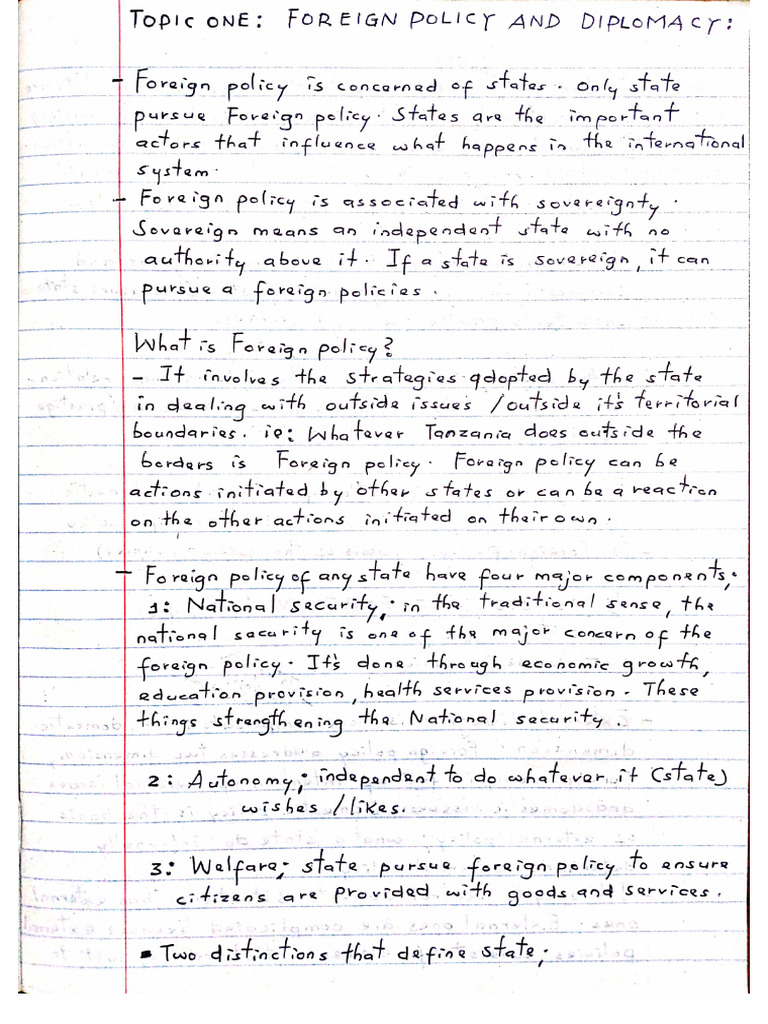 TOPIC ONE: FOREIGN POLICY AND DIPLOMACY:
- Foreign policy is concerned of states. Only state
pursue Foreign policy. States are the important
actors that influence what happens in the international
system.
- Foreign policy is associated with sovereignty.
Sovereign means an independent state with no
authority above it. If a state is sovereign, it can
pursue a foreign policies.
What is Foreign policy?
- It involves the strategies adopted by the state
in dealing with outside issues /outside it's territorial
boundaries. ie: Whatever Tanzania does outside the
borders is Foreign policy. Foreign policy can be
actions initiated by other states or can be a reaction
on the other actions initiated on their own.
- Foreign policy of any state have four major components;
1: National security; in the traditional sense, the
national security is one of the major concern of the
foreign policy. It's done through economic growth,
education provision, health services provision. These
things strengthening the National security.
2: Autonomy; independent to do whatever it (state)
wishes /likes.
3: Welfare; state pursue foreign policy to ensure
citizens are provided with goods and services.
▪ Two distinctions that define state;